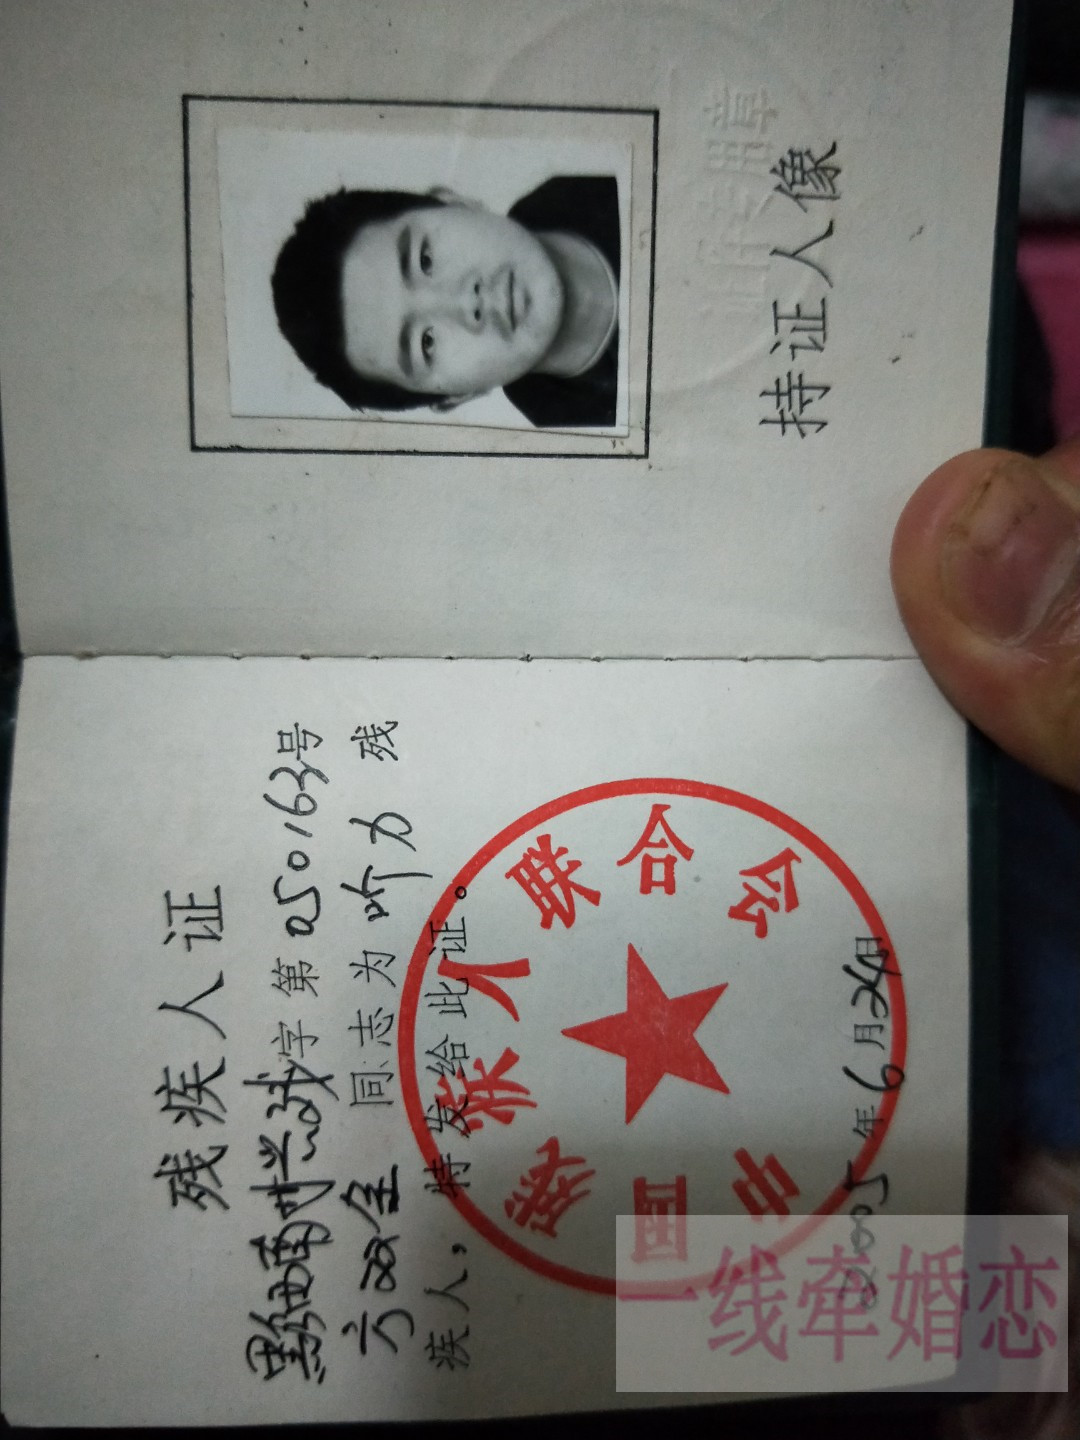 持证人像
残疾人证
黔西南州兴残字第250163号
方双全 同志为听力 残
疾人，特发给此证。
中国残疾人联合会
2005年6月24日
一线牵婚恋